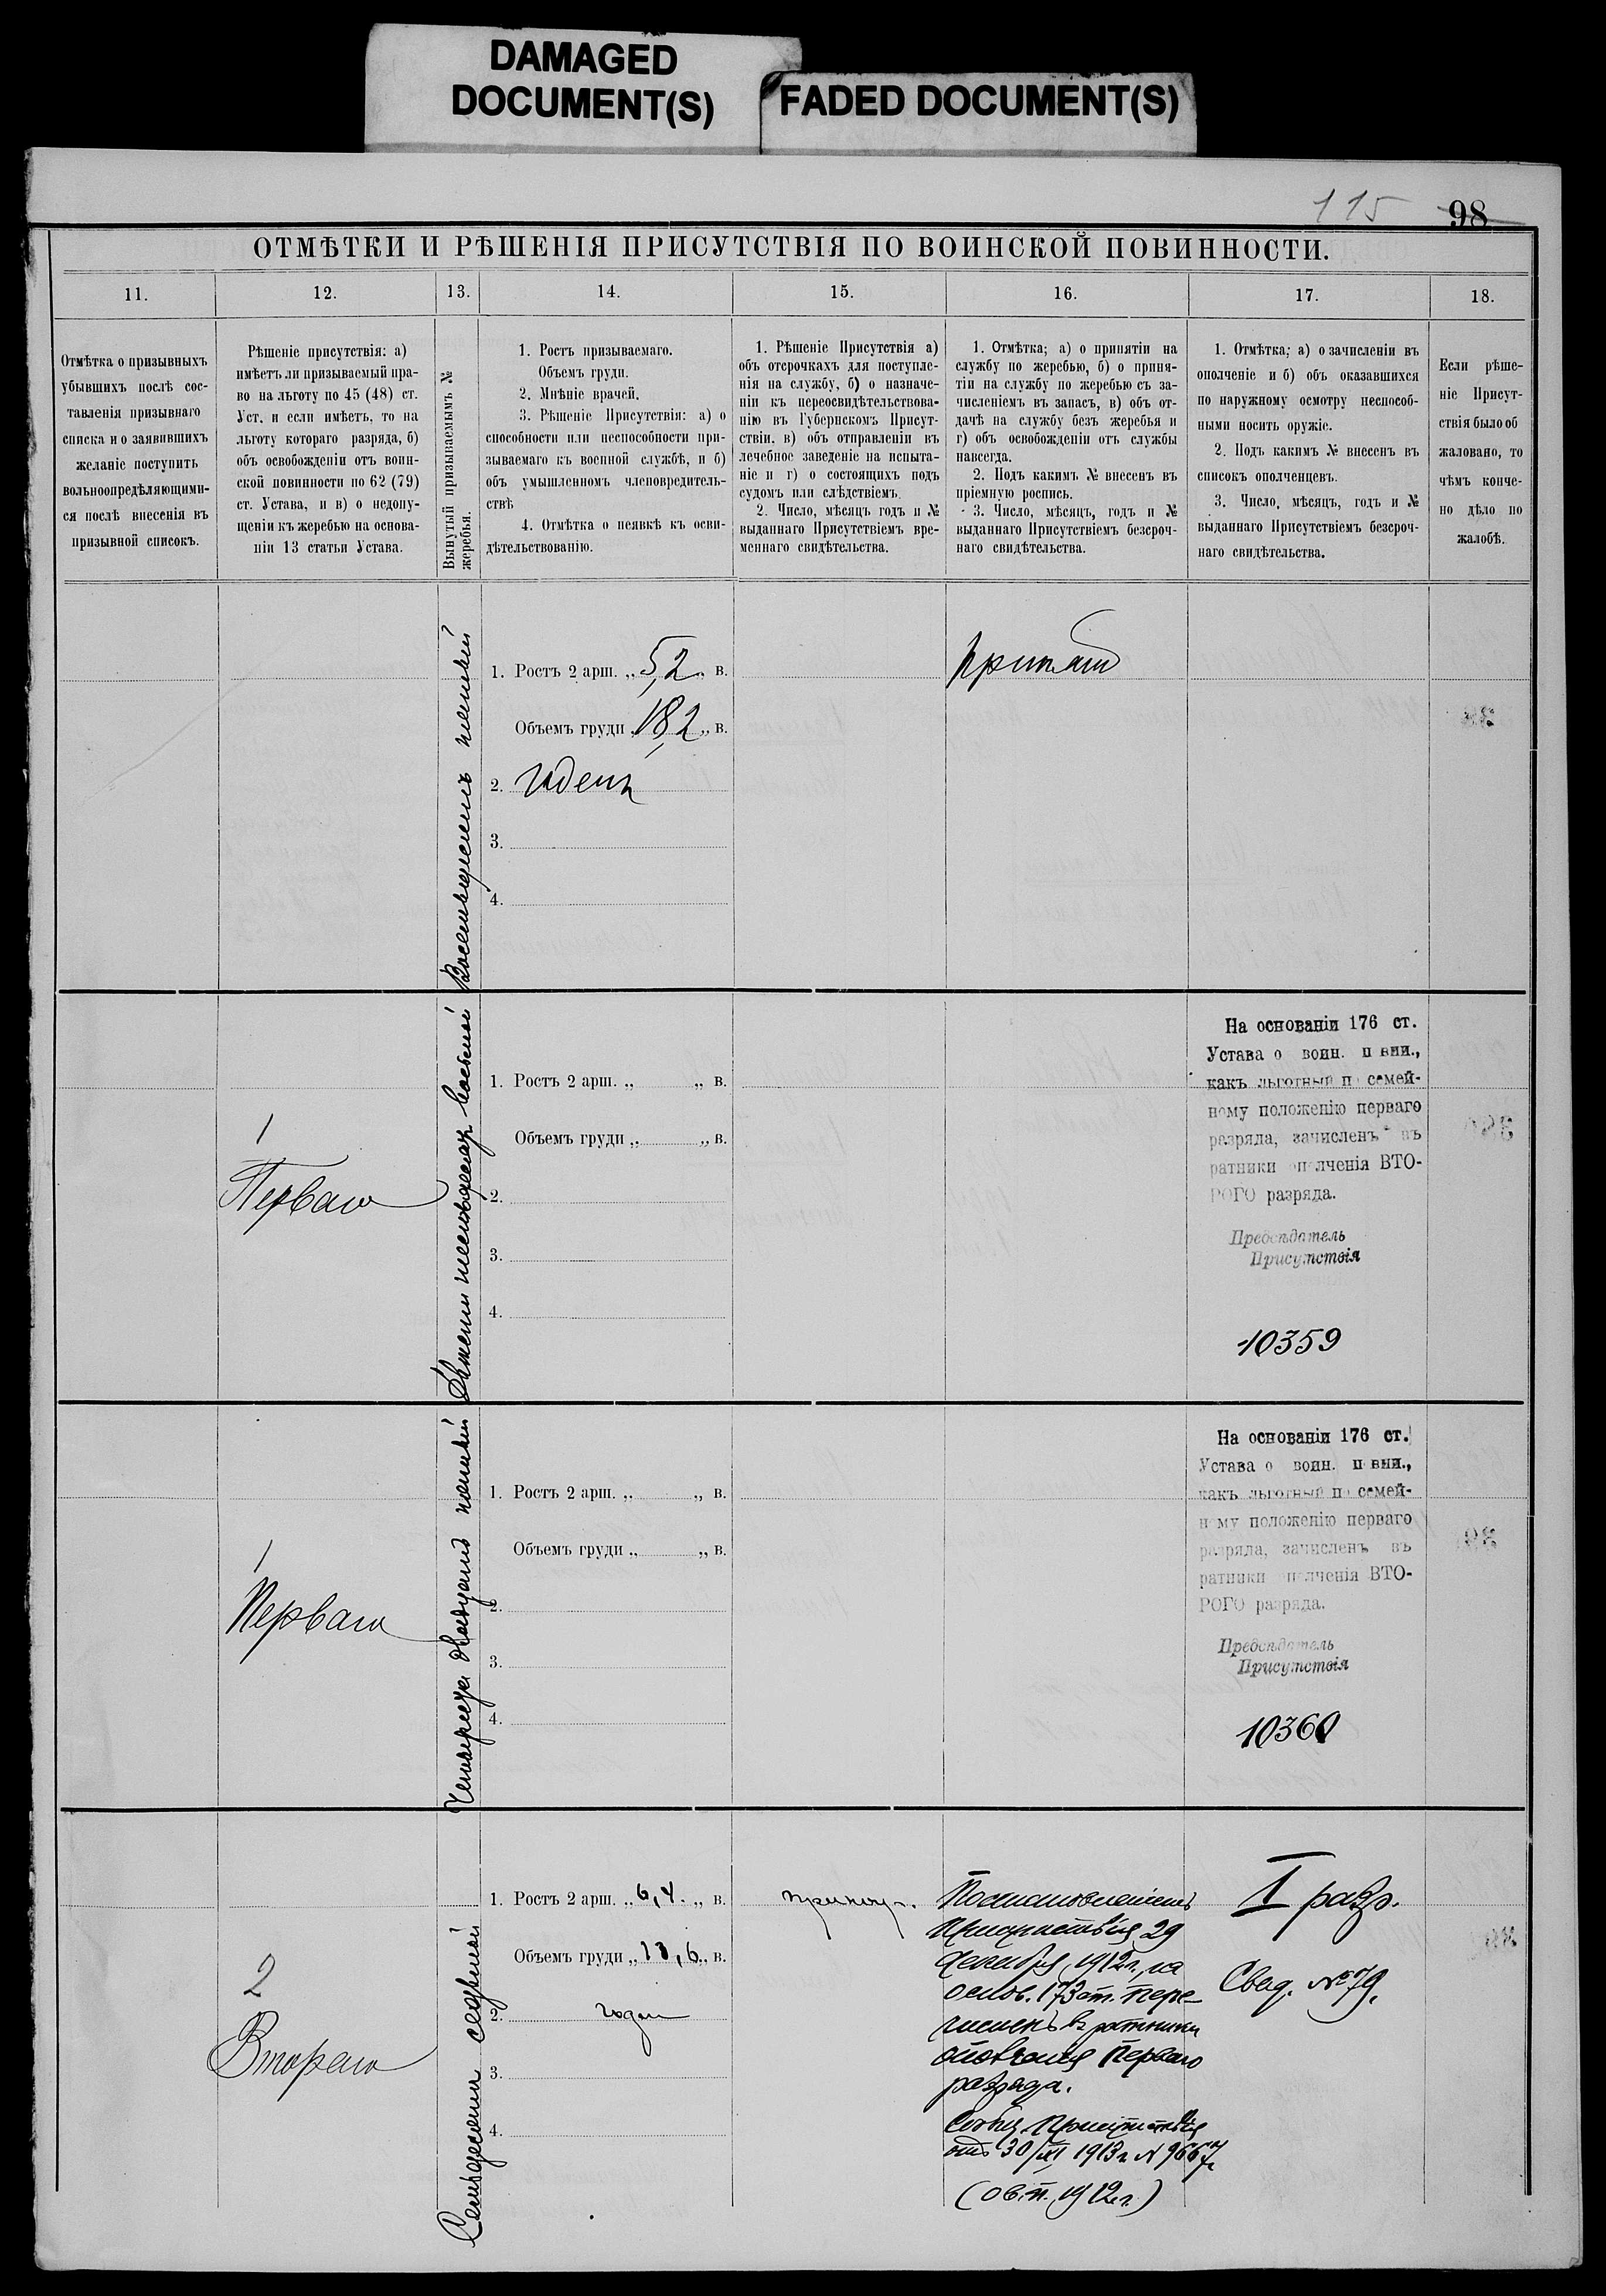 DAMAGED
DOCUMENT(S)
FADED DOCUMENT(S)
115 98
ОТМѢТКИ И РѢШЕНІЯ ПРИСУТСТВІЯ ПО ВОИНСКОЙ ПОВИННОСТИ.
11.
12.
13.
14.
15.
16.
17.
18.
Отмѣтка о призывныхъ
убывшихъ послѣ сос-
тавленія призывнаго
списка и о заявившихъ
желаніе поступить
вольноопредѣляющими-
ся послѣ внесенія въ
призывной списокъ.
Рѣшеніе присутствія: а)
имѣетъ ли призываемый пра-
во на льготу по 45 (48) ст.
Уст. и если имѣетъ, то на
льготу котораго разряда, б)
объ освобожденіи отъ воин-
ской повинности по 62 (79)
ст. Устава, и в) о недопу-
щеніи къ жеребью на основа-
ніи 13 статьи Устава.
Вынутый призываемымъ №
жеребья.
1. Ростъ призываемаго.
Объемъ груди.
2. Мнѣніе врачей.
3. Рѣшеніе Присутствія: а) о
способности или неспособности при-
зываемаго къ военной службѣ, и б)
объ умышленномъ членовредитель-
ствѣ
4. Отмѣтка о неявкѣ къ осви-
дѣтельствованію.
1. Рѣшеніе Присутствія а)
объ отсрочкахъ для поступле-
нія на службу, б) о назначе-
ніи къ переосвидѣтельствова-
нію въ Губернскомъ Присут-
ствіи. в) объ отправленіи въ
лечебное заведеніе на испыта-
ніе и г) о состоящихъ подъ
судомъ или слѣдствіемъ.
2. Число, мѣсяцъ годъ и №
выданнаго Присутствіемъ вре-
меннаго свидѣтельства.
1. Отмѣтка; а) о принятіи на
службу по жеребью, б) о приня-
тіи на службу по жеребью съ за-
численіемъ въ запасъ, в) объ от-
дачѣ на службу безъ жеребья и
г) объ освобожденіи отъ службы
навсегда.
2. Подъ какимъ № внесенъ въ
пріемную роспись.
3. Число, мѣсяцъ, годъ и №
выданнаго Присутствіемъ безсроч-
наго свидѣтельства.
1. Отмѣтка; а) о зачисленіи въ
ополченіе и б) объ оказавшихся
по наружному осмотру неспособ-
ными носить оружіе.
2. Подъ какимъ № внесенъ въ
списокъ ополченцевъ.
3. Число, мѣсяцъ, годъ и №
выданнаго Присутствіемъ безсроч-
наго свидѣтельства.
Если рѣше-
ніе Присут-
ствія было об
жаловано, то
чѣмъ конче-
но дѣло по
жалобѣ.
Восемьдесятъ пятый
1. Ростъ 2 арш. „ 5,2 „ в.
Объемъ груди „ 18,2 „ в.
2. Годенъ
3.
4.
Принятъ
1
Перваго
восьмой
1. Ростъ 2 арш. „ „ в.
Объемъ груди „ „ в.
2.
3.
4.
На основаніи 176 ст.
Устава о воин. п вин.,
какъ льготный п семей-
ному положенію перваго
разряда, зачисленъ въ
ратники оп лченія ВТО-
РОГО разряда.
Предсѣдатель
Присутствія
10359
1
Перваго
Четыреста двадцать пятый
1. Ростъ 2 арш. „ „ в.
Объемъ груди „ „ в.
2.
3.
4.
На основаніи 176 ст.
Устава о воин. п вин.,
какъ льготный п семей-
н му положенію перваго
разряда, зачисленъ въ
ратники п лченія ВТО-
РОГО разряда.
Предсѣдатель
Присутствія
10360
2
Второго
Семьдесятъ седьмой
1. Ростъ 2 арш. „ 6,4. „ в.
Объемъ груди „ 13,6 „ в.
2. годен
3.
4.
Постановленіемъ
Присутствія 29
Декабря 1912 г., на
основ. 173 ст. пере-
численъ въ ратники
ополченія перваго
разряда.
Сообщ. Присутствія
отъ 30/XI 1913 г. N 9667
(ов. п. 1912 г.)
I разр.
Свид. № 79.